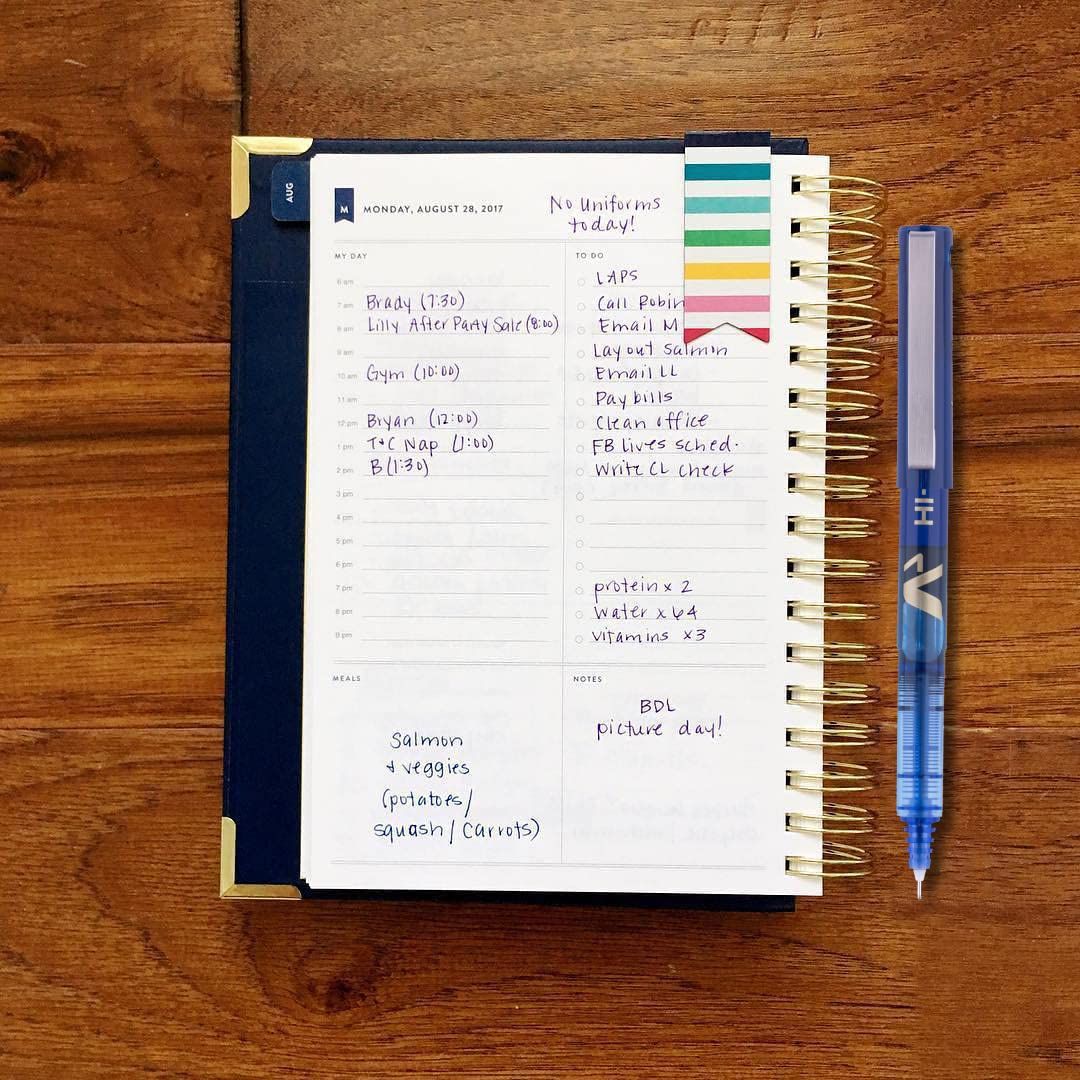 AUG
M MONDAY, AUGUST 28, 2017
No Uniforms
today!
MY DAY
6 am
7 am Brady (7:30)
8 am Lilly After Party Sale (8:00)
9 am
10 am Gym (10:00)
11 am
12 pm Bryan (12:00)
1 pm T+C Nap (1:00)
2 pm B (1:30)
3 pm
4 pm
5 pm
6 pm
7 pm
8 pm
9 pm
TO DO
LAPS
Call Robin
Email M
Lay out Salmon
Email LL
Pay bills
Clean office
FB lives sched.
Write CL check
protein x 2
water x 64
vitamins x3
MEALS
Salmon
+ veggies
(potatoes/
squash/carrots)
NOTES
BDL
picture day!
HI-
V